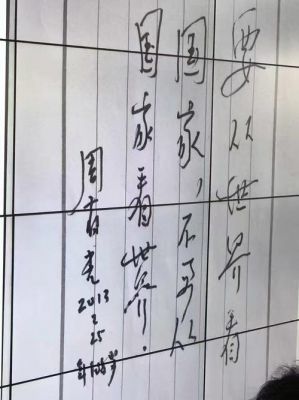 要从世界看
国家，不要从
国家看世界！
周有光
2013
2
25
时年108岁